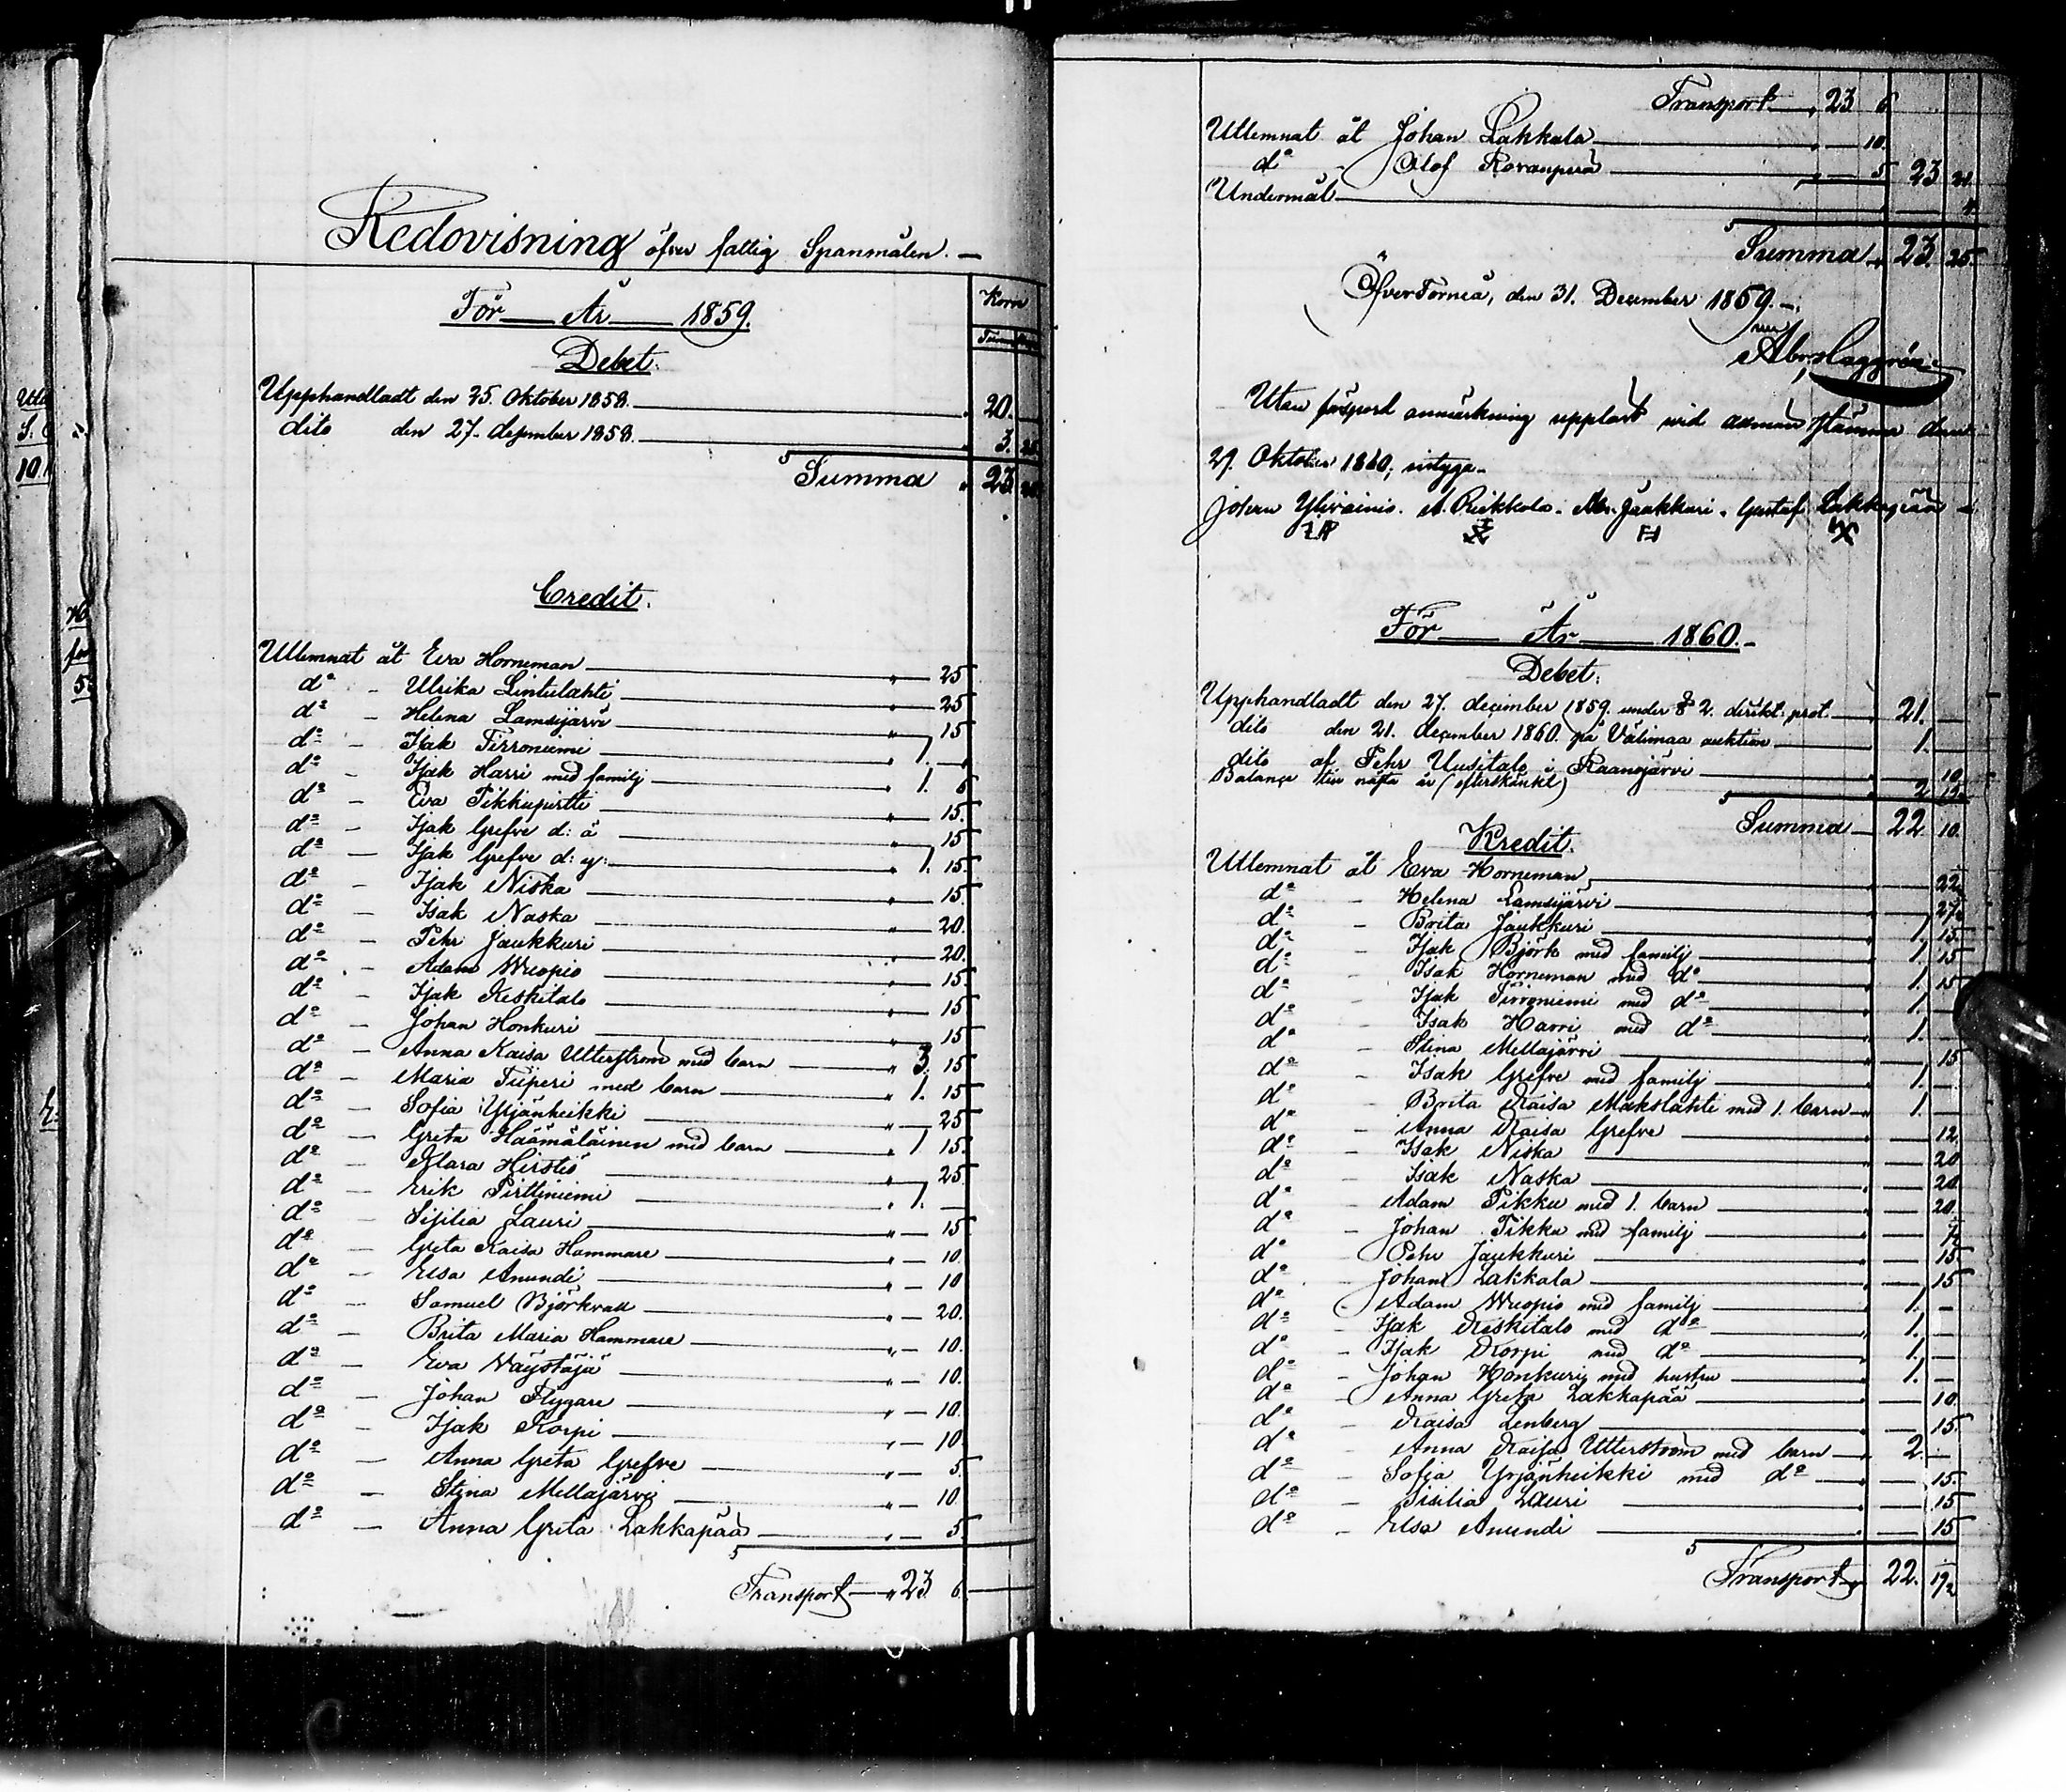 Redovisning öfver fattig Spanmålen.
För År 1859.
Korn
Debet.
Upphandladt den 25. Oktober 1858. 20.
dito den 27. desember 1858. 3. 25
Summa 23 25
Credit.
Utlemnat åt Eva Horneman " 25
do - Ulrika Lintulahti " 25
do - Helena Lamsijärvi " 15
do - Isak Tirroniemi 1. -
do - Isak Harri med familj " 1. 6
do - Eva Pikkupirtti " 15.
do - Isak Grefve d: ä " 15
do - Isak Grefve d: y: " 1. 15
do - Isak Niska " 15.
do - Isak Naska " 20.
do - Pehr Jaukkuri " 20.
do - Adam Wuopio " 15.
do - Isak Keskitalo " 15
do - Johan Honkuri " 15
do - Anna Kaisa Utterström med barn " 3. 15
do - Maria Tiiperi med barn " 1. 15
do - Sofia Yrjänheikki " 25
do - Greta Häämäläinen med barn " 1 15.
do - Klara Hirstiö " 25
do - Erik Pirttiniemi " 1. -
do - Sisilia Lauri " 15
do - Greta Kaisa Hammare " 10.
do - Elsa Anundi " 10
do - Samuel Björkvall " 20.
do - Brita Maria Hammare " 10.
do - Eva Väystäjä " 10.
do - Johan Flygare " 10.
do - Isak Korpi " 10.
do - Anna Greta Grefve " 5.
do - Stina Mellajärvi " 10
do - Anna Greta Lakkapää " 5.
Transport " 23 6.
Transport 23 6
Utlemnat åt Johan Lakkala " 10.
do - Olof Rovanperä " 5 23 21
Undermål 4.
Summa 23. 25.
ÖfverTorneå, den 31. December 1859.
Abr. Haggrén
Utan förspord anmärkning uppläst vid allmän stämma den
29. Oktober 1860, intyga
Johan Ylivainio. A. Rukkola. Abr. Jaukkuri. Gustaf Lakkapää
För År 1860.
Debet.
Upphandladt den 27. december 1859. under § 2. direkt: prot. 21. -
dito den 21. december 1860. på Välimaa auktion 1. -
dito af Pehr Uusitalo i Raanojärvi 10
Balance till nästa år (efterskänkt) 2 19½
Summa 22 10.
Kredit.
Utlemnat åt Eva Horneman 22½
do - Helena Lamsijärvi 27½
do - Brita Jaukkuri 1 15.
do - Isak Björk med familj 1. 15
do - Isak Horneman med do 1. 15
do - Isak Tirroniemi med do 1. -
do - Isak Harri med do 1. -
do - Stina Mellajärvi 15
do - Isak Grefve med familj 1. -
do - Brita Kaisa Makslahti med 1. barn 1. -
do - Anna Kaisa Grefve 12
do - Isak Niska 20
do - Isak Naska 20
do - Adam Pikku med 1. barn 20.
do - Johan Pikku med familj
do - Pehr Jaukkuri 15.
do - Johan Lakkala 15
do - Adam Wuopio med familj 1. -
do - Isak Keskitalo med do 1. -
do - Isak Korpi med do 1. -
do - Johan Honkuri med hustru 1. -
do - Anna Greta Lakkapää 10.
do - Kaisa Lenberg 15.
do - Anna Kaisa Utterström med barn 2. -
do - Sofia Yrjänheikki med do 15.
do - Sisilia Lauri 15
do - Elsa Anundi 15
Transport 22. 19½